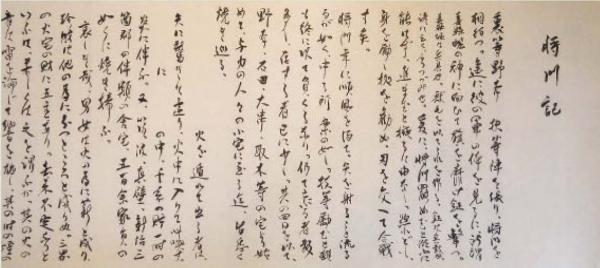 将門記
裏等野本 扶等陣を張り、将門を
相待つ。遥に彼の軍の体を見るに、所謂
纛崛の神に向ひて旗を靡け鉦を撃つ。
爰に、将門罷めむと欲ふに
能はず、進まむと擬るに由なし。然れども、
身を励し勧め拠り、刃を交へて合戦
す矣。
将門幸に順風を得て、矢を射ること流る
るが如く、中る所案の如し。扶等励むと雖
も終に以て負くるなり。仍て亡ぶる者数
多く、存する者已に少し。其の四日を以て
野本・石田・大串・取木等の宅より始
めて、与力の人々の小宅に至る迄、皆悉く
焼き巡る。
火を遁れて出づる者は、
矢に驚きて還り、火中に入りて叫喚す。
に の中、千年の貯一時の
炎に伴ふ。又、筑波・真壁・新治三
箇郡の伴類の舎宅、五百余家員の
如くに焼き掃ふ。
哀しき哉、男女は火の為に薪と成り、
珍財は他の為に分つところと成りぬ。三界
の火宅の財に五主有り、去来不定なりと
いふは、若しくは之を謂ふか。其の日の火の
声は雷を論じて響を施し、其の時の煙の